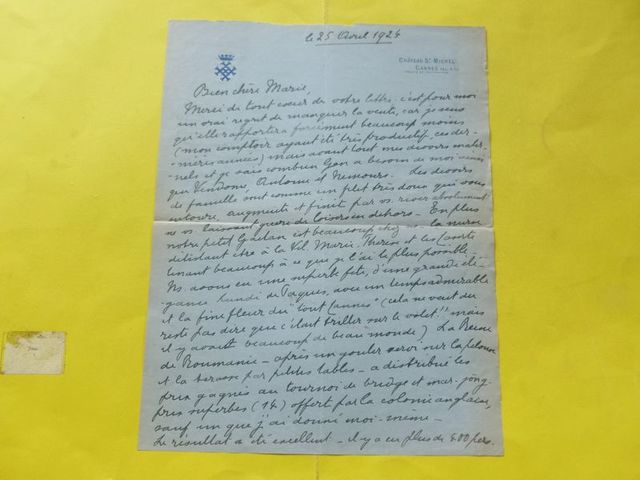 le 25 Avril 1924
CHÂTEAU ST MICHEL
CANNES
Bien chère Marie,
Merci de tout coeur de votre lettre. c'est pour moi
un vrai regret de manquer la vente, car je sens
qu'elle apportera forcément beaucoup moins
(mon comptoir ayant été très productif, ces der-
nières années) mais avant tout mes devoirs mater-
nels et je sais combien Gen a besoin de moi
que Vendome, Antoine et Nemours. Les devoirs
de famille sont comme un filet très doux qui vous
entoure, augmente et finit par vs. river absolument
ne vs laissant guère de loisirs en dehors. En plus
notre petit est beaucoup chez ns. la nurse
détestant être à la Vil. Marie-Thérèse et les
tenant beaucoup à ce que je l'ai le plus possible.
Ns. avons eu une superbe fête, d'une grande élé-
gance lundi de Pâques, avec un temps admirable
et la fine fleur du "tout Cannes" (cela ne veut du
reste pas dire que c'était trillier sur le volet!! mais
il y avait beaucoup de beau monde) La Reine
de Roumanie - après un goûter servi sur la pelouse
et la terasse par petites tables - a distribué les
prix gagnés au tournoi de bridge et mar-jong,
prix superbes (14) offert par la colonie anglaise,
sauf un que j'ai donné moi-même -
Le résultat a été excellent - il y a eu plus de 400 pers.